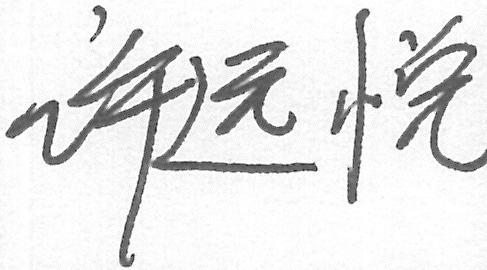 许远悦